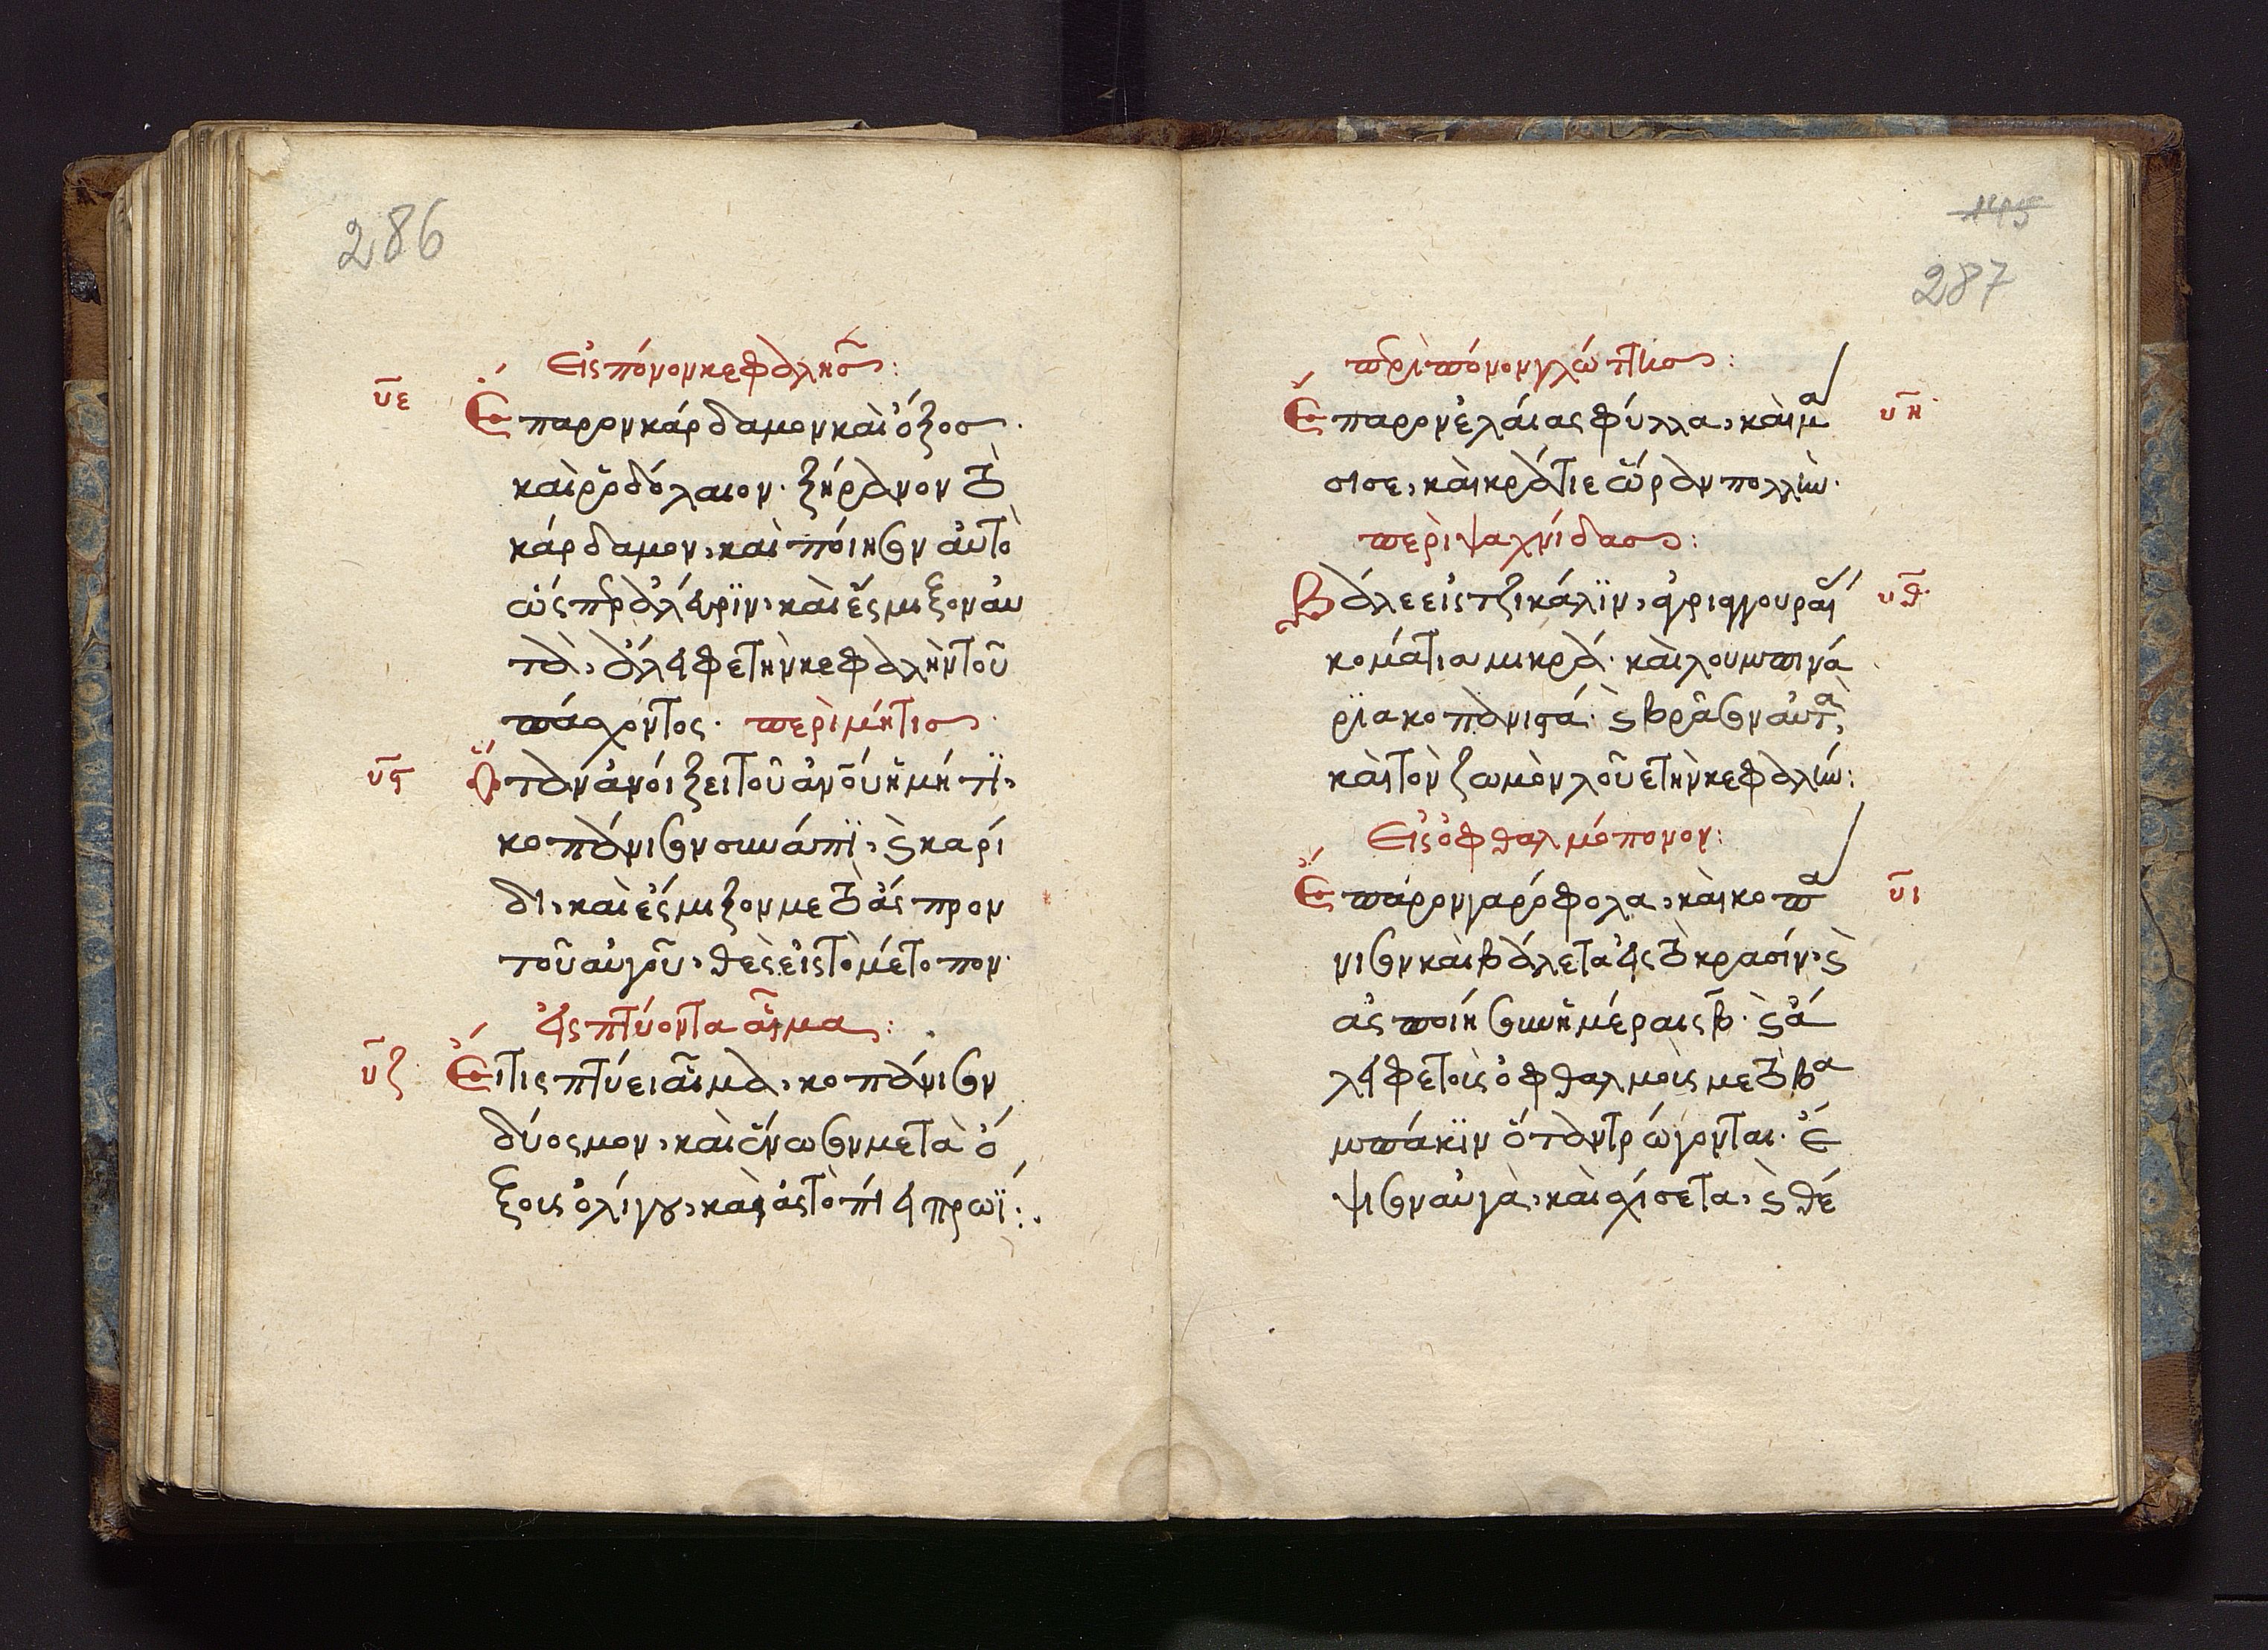 286
Εἰς πόνον κεφαλῆς:
υε Ἔπαρον κάρδαμον καὶ ὄξος.
καὶ ῥοδόλαιον. ξήρανον τὸ
κάρδαμον, καὶ ποίησον αὐτὸ
ὡς παρ ἀλεύρϊν, καὶ ἔσμιξον αυ
τὰ, ἄλειφε τὴν κεφαλὴν τοῦ
πάσχοντος. περὶ μύτις.
υϛ Ὅταν ἀνοίξει τοῦ ἀνοῦ ἡ μύτϊ,
κοπάνισον σινάπϊ, ϛ καρί
δι, καὶ ἔσμιξον με τὸ ἄσπρον
τοῦ αὐγοῦ, θὲς εἰς τὸ μέτοπον.
εἰς πτύοντα αἷμα:
υζ Εἴ τις πτύει αἷμα, κοπάνισον
δύοσμον, καὶ ἕνωσον μετὰ ὄ
ξους ὀλίγου, καὶ ἂς τὸ πίει πρωΐ:.
145
287
περὶ πόνον γλώττης:
Ἔπαρον ἐλαίας φύλλα, καὶ μα υη
σισε, καὶ κράτιε ὥραν πολλήν.
περὶ ψαχνίδας:
Βάλε εἰς τζικάλϊν, ἀγριαγγουραί υθ
κομάτια μικρά. καὶ λουμπινά
ρϊα κοπανιστά. ϛ βράσον αὐτά,
καὶ τὸν ζωμὸν λοῦε τὴν κεφαλήν:
Εἰς ὀφθαλμόπονον:
Ἔπαρον γαρόφολα, καὶ κοπα υι
νισον καὶ βάλε τα εἰς τὸ κρασίν, ϛ
ἂς ποιήσουν ἡμέραις β. ϛ ἄ
λειφε τοὺς ὀφθαλμοὺς με τὸ βα
μπάκϊν ὅταν τρώγονται. ἕ
ψισον αὐγὰ, καὶ σχίσε τα, ϛ θέ